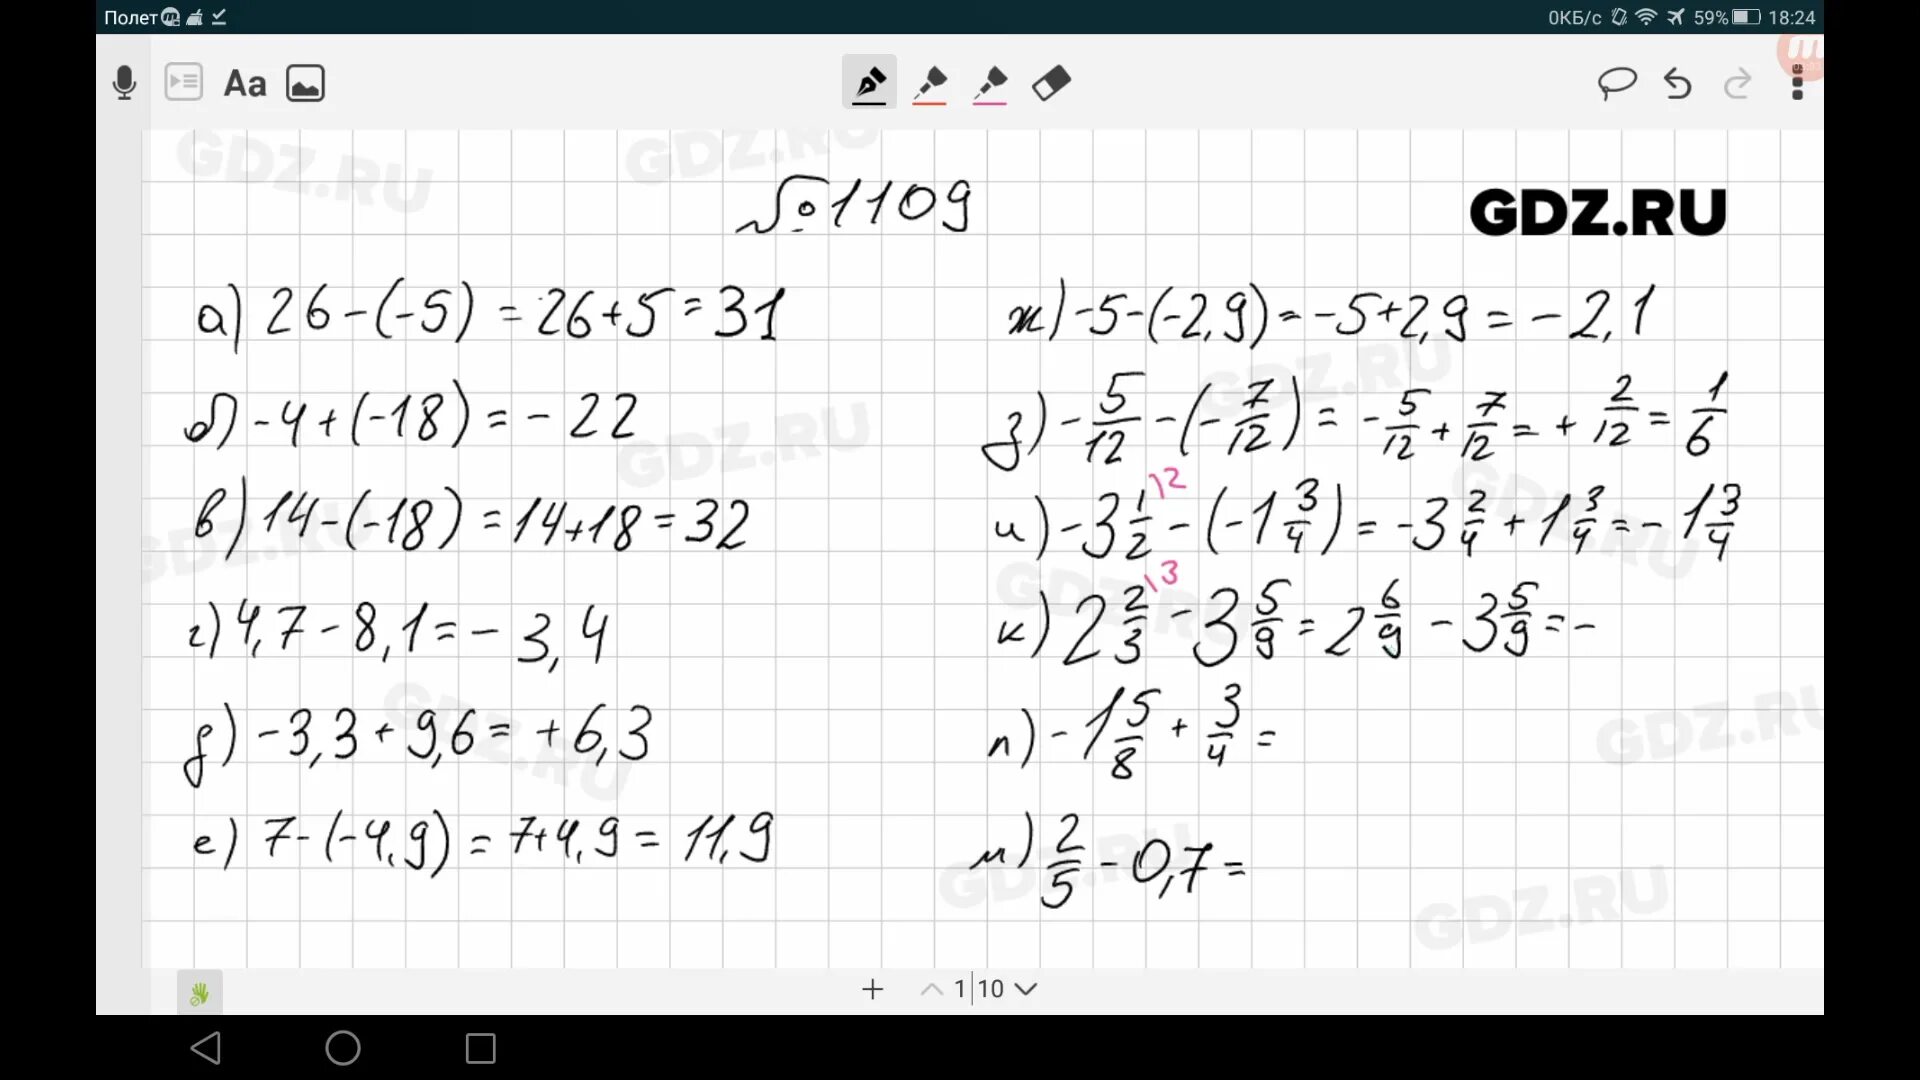 Полет 0КБ/с 59% 18:24
Aa
GDZ.RU GDZ.RU
№1109
GDZ.RU
а) 26-(-5) = 26+5 = 31
б) -4+(-18) = -22
в) 14-(-18) = 14+18 = 32
г) 4,7-8,1 = -3,4
д) -3,3+9,6 = +6,3
е) 7-(-4,9) = 7+4,9 = 11,9
ж) -5-(-2,9) = -5+2,9 = -2,1
з) -5/12-(-7/12) = -5/12+7/12 = +2/12 = 1/6
и) -3 1/2 \2 -(-1 3/4) = -3 2/4+1 3/4 = -1 3/4
к) 2 2/3 \3 -3 5/9 = 2 6/9-3 5/9 = -
л) -1 5/8+3/4 =
м) 2/5-0,7 =
GDZ.RU
GDZ.RU
GDZ.RU
GDZ.RU
GDZ.RU
GDZ.RU
GDZ.RU
GDZ.RU
GDZ.RU
GDZ.RU
1|10